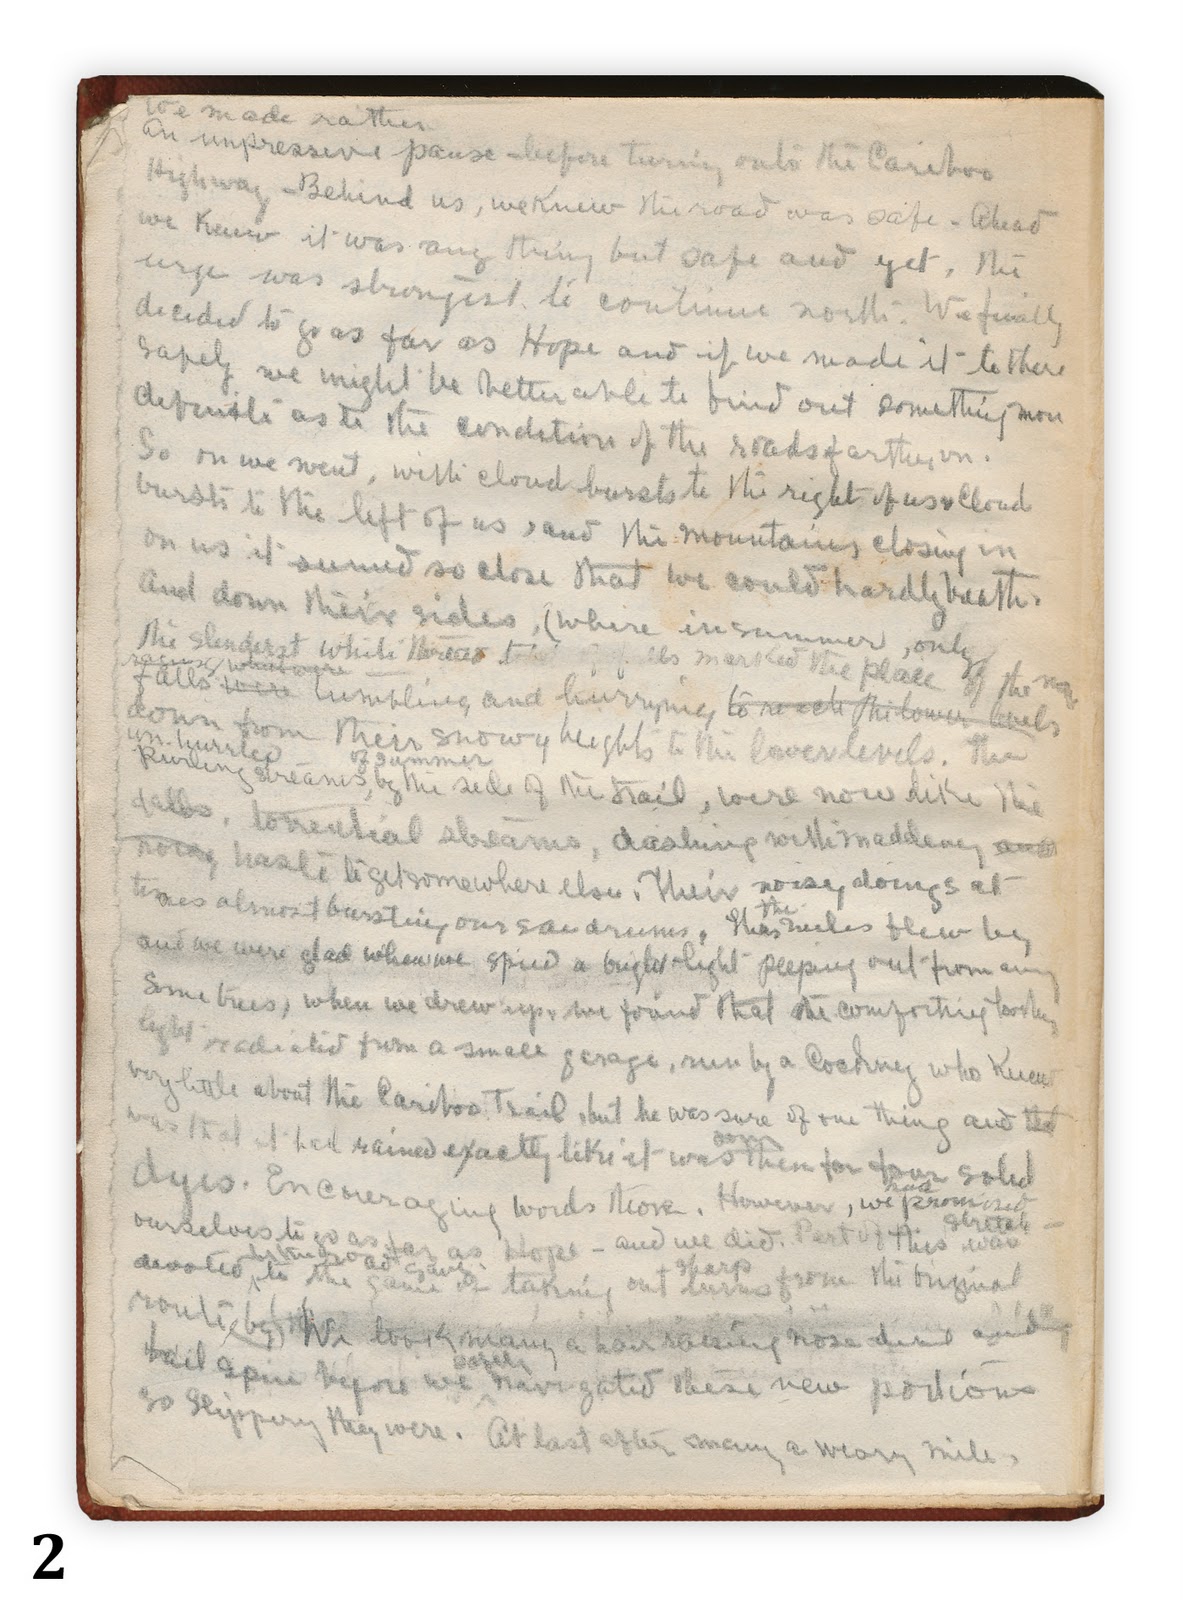 We made rather
an impressive pause - before turning onto the Cariboo
Highway - Behind us, we knew the road was safe - Ahead
we knew it was any thing but safe and yet, the
urge was strongest to continue north. We finally
decided to go as far as Hope and if we made it to there
safely we might be better able to find out something more
definite as to the condition of the roads farther on.
So on we went, with cloud bursts to the right of us & cloud
bursts to the left of us, and the mountains closing in
on us it seemed so close that we could hardly breathe.
And down their sides, (where in summer, only
the slenderest white thread marked the place of the
raging what were
falls were tumbling and hurrying to reach the lower levels
down from their snowy heights to the lower levels. The
un hurried of summer
Purling streams, by the side of the trail, were now like the
falls, torrential streams, dashing with maddening and
noisy haste to get somewhere else. Their noisy doings at
times almost bursting our ear drums. the
Thus miles flew by
and we were glad when we spied a bright light peeping out from
some trees, when we drew up, we found that the comforting looking
light radiated from a small garage, run by a Cockney who knew
very little about the Cariboo Trail, but he was sure of one thing and that
was that it had rained exactly like it was then for four solid
dyes. Encouraging words those. However, we had promised
ourselves to go as far as Hope - and we did. Part of this stretch was
devoted to the game of taking out sharp turns from the original
route by We took many a hair raising nose dive and
tail spin before we safely navigated these new portions
so slippery they were. At last after many a weary mile,
2